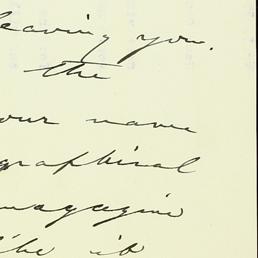 leaving you.
the
our name
graphical
magazine
like it